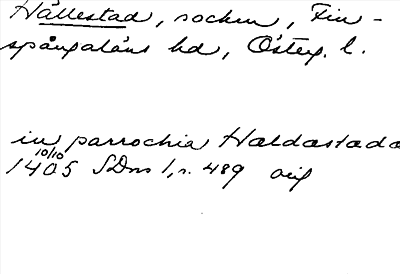 Hällestad, socken, Fin-
spångaläns hd, Österg. l.
in parrochia Haldastada
10/10
1405 SDns 1, s. 489 orig